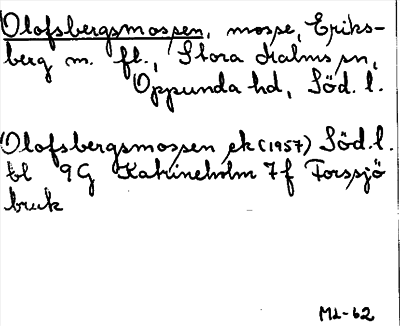 Olofsbergsmossen, mosse, Eriks-
berg m. fl., Stora Malms sn,
Oppunda hd, Söd. l.
Olofsbergsmossen ek (1957) Söd. l.
bl 9G Katrineholm 7f Forssjö
bruk
ML-62